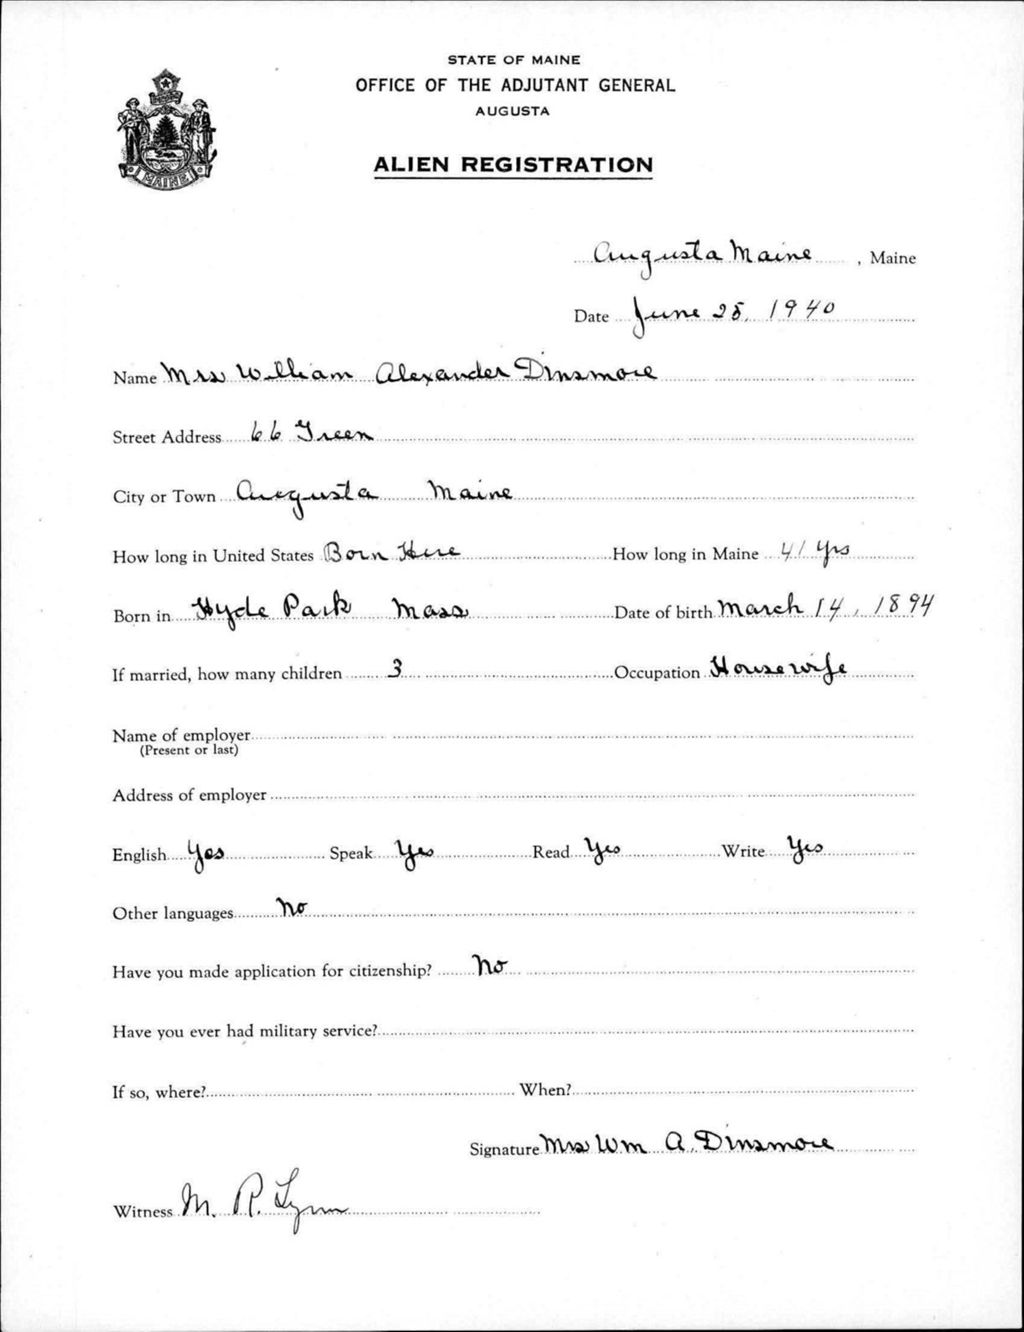 STATE OF MAINE
OFFICE OF THE ADJUTANT GENERAL
AUGUSTA
ALIEN REGISTRATION
MAINE
Augusta Maine, Maine
Date June 28, 1940
Name Mrs William Alexander Dinsmore
Street Address 66 Green
City or Town Augusta Maine
How long in United States Born Here How long in Maine 41 yrs
Born in Hyde Park Mass Date of birth March 14, 1894
If married, how many children 3 Occupation Housewife
Name of employer
(Present or last)
Address of employer
English Yes Speak Yes Read Yes Write Yes
Other languages No
Have you made application for citizenship? No
Have you ever had military service?
If so, where? When?
Signature Mrs Wm A. Dinsmore
Witness M. R. Lynn